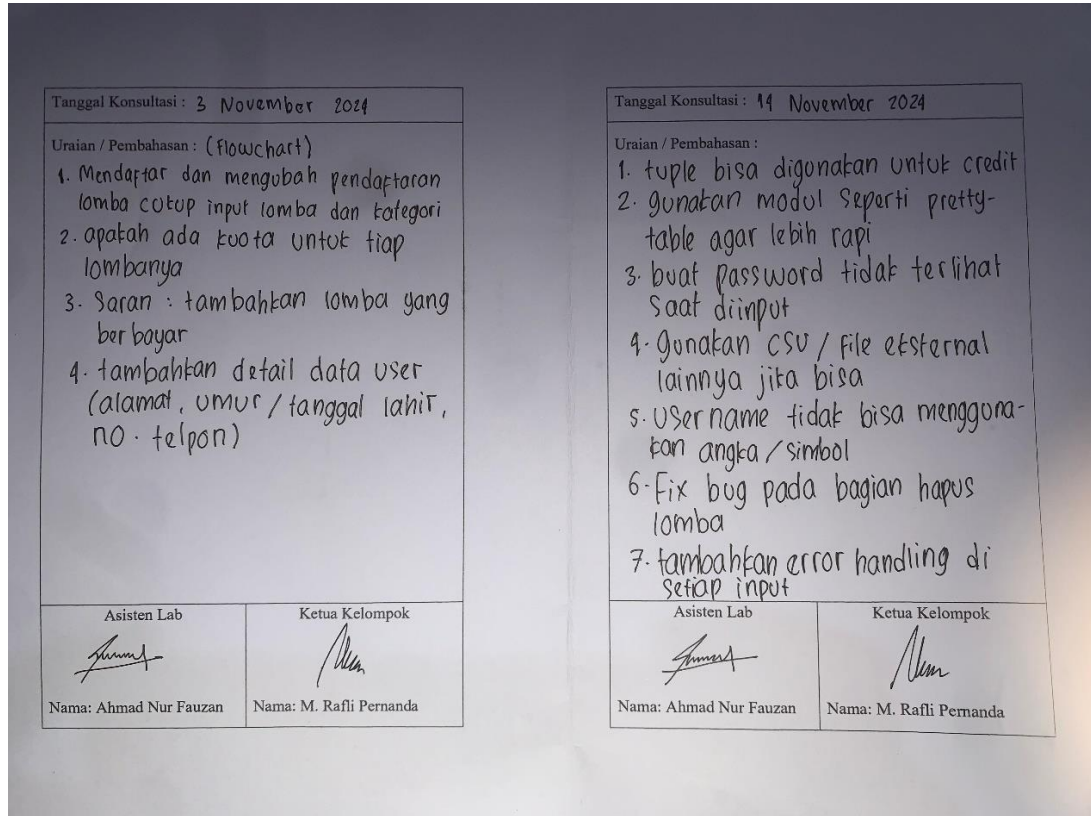 Tanggal Konsultasi : 3 November 2024
Uraian / Pembahasan : (Flowchart)
1. Mendaftar dan mengubah pendaftaran
lomba cukup input lomba dan kategori
2. apakah ada kuota untuk tiap
lombanya
3. Saran : tambahkan lomba yang
berbayar
4. tambahkan detail data user
(alamat, umur / tanggal lahir,
no. telpon)
Asisten Lab
Ketua Kelompok
Nama: Ahmad Nur Fauzan
Nama: M. Rafli Pernanda
Tanggal Konsultasi : 14 November 2024
Uraian / Pembahasan :
1. tuple bisa digunakan untuk credit
2. gunakan modul seperti pretty-
table agar lebih rapi
3. buat password tidak terlihat
saat diinput
4. gunakan CSV / File eksternal
lainnya jika bisa
5. Username tidak bisa mengguna-
kan angka / simbol
6. Fix bug pada bagian hapus
lomba
7. tambahkan error handling di
setiap input
Asisten Lab
Ketua Kelompok
Nama: Ahmad Nur Fauzan
Nama: M. Rafli Pernanda